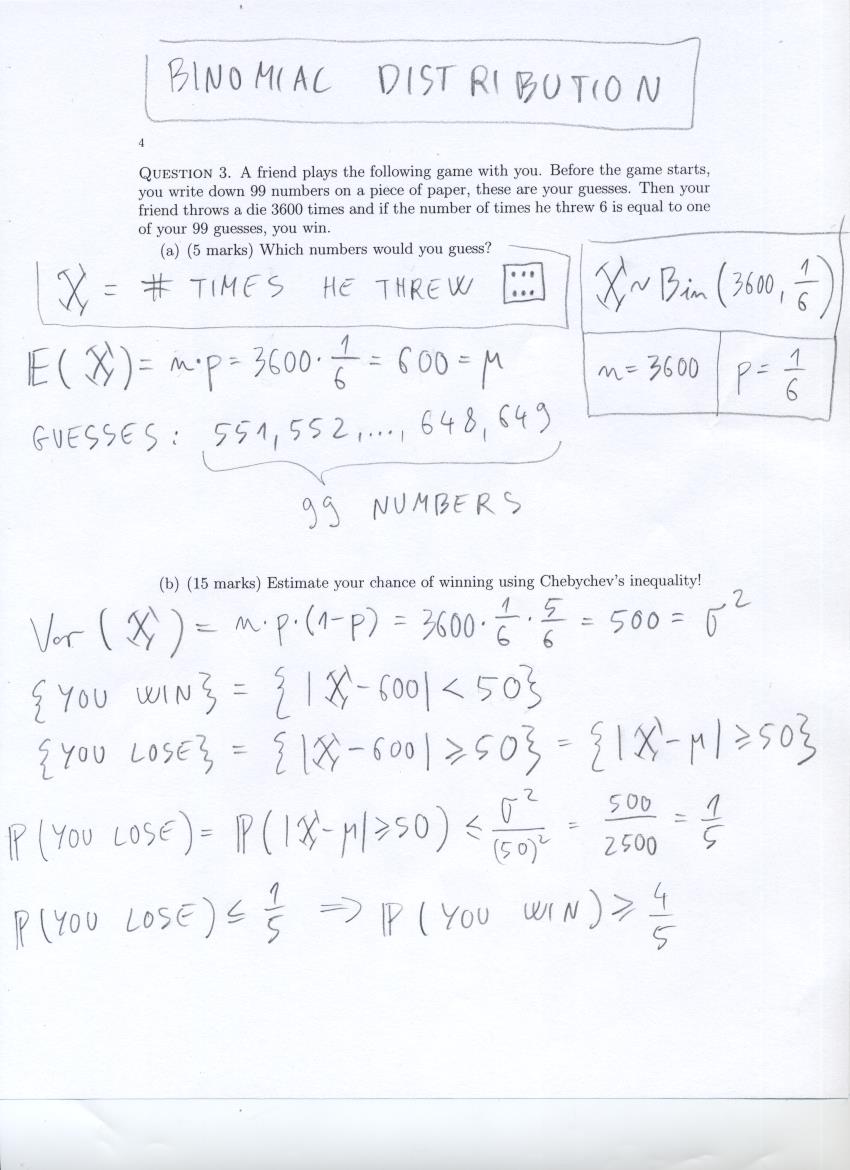 BINOMIAL DISTRIBUTION
4
QUESTION 3. A friend plays the following game with you. Before the game starts,
you write down 99 numbers on a piece of paper, these are your guesses. Then your
friend throws a die 3600 times and if the number of times he threw 6 is equal to one
of your 99 guesses, you win.
(a) (5 marks) Which numbers would you guess?
X = # TIMES HE THREW ⚅
X ~ Bin (3600, 1/6)
n = 3600 p = 1/6
E(X) = n·p = 3600 · 1/6 = 600 = μ
GUESSES: 551, 552, ..., 648, 649
99 NUMBERS
(b) (15 marks) Estimate your chance of winning using Chebychev's inequality!
Var (X) = n·p·(1-p) = 3600 · 1/6 · 5/6 = 500 = σ²
{YOU WIN} = {|X-600| < 50}
{YOU LOSE} = {|X-600| ≥ 50} = {|X-μ| ≥ 50}
ℙ(YOU LOSE) = ℙ(|X-μ| ≥ 50) ≤ σ²/(50)² = 500/2500 = 1/5
ℙ(YOU LOSE) ≤ 1/5 ⇒ ℙ(YOU WIN) ≥ 4/5